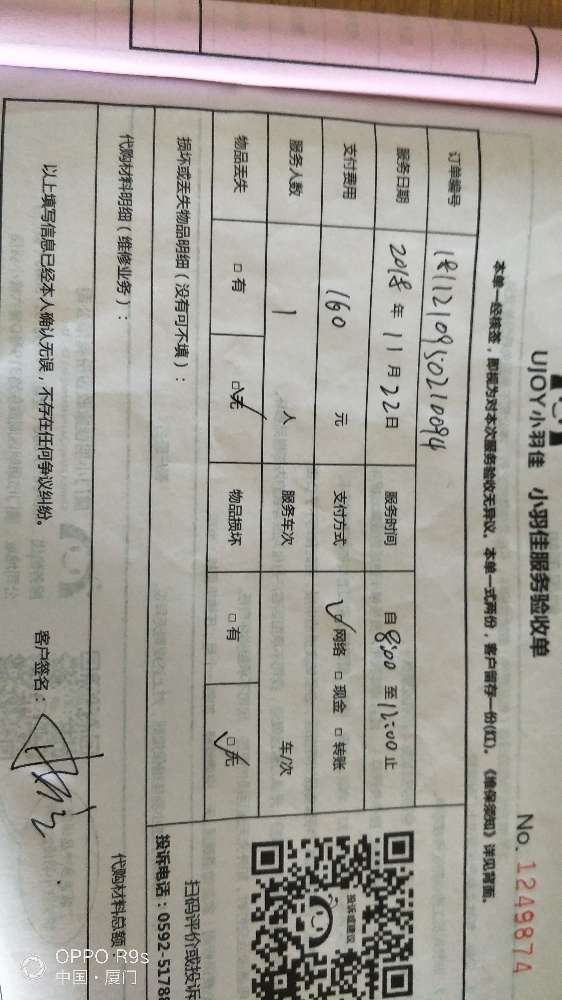 UJOY小羽佳 小羽佳服务验收单
No. 1249874
本单一经核签，即视为对本次服务验收无异议。本单一式两份，客户留存一份(红)。《维保须知》详见背面。
订单编号 1811210950210094
服务日期 2018年11月22日 服务时间 自8:00至12:00止
支付费用 160 元 支付方式 ☑网络 □现金 □转账
服务人数 1 人 服务车次 车/次
物品丢失 □有 ☑无 物品损坏 □有 ☑无
损坏或丢失物品明细（没有可不填）：
代购材料明细（维修业务）：
代购材料总额
以上填写信息已经本人确认无误，不存在任何争议纠纷。
客户签名：
投诉或建议
扫码评价或投诉
投诉电话：0592-5178
OPPO R9s
中国·厦门